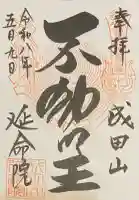 奉拝
成田山
不動明王
延命院
令和八年
五月九日